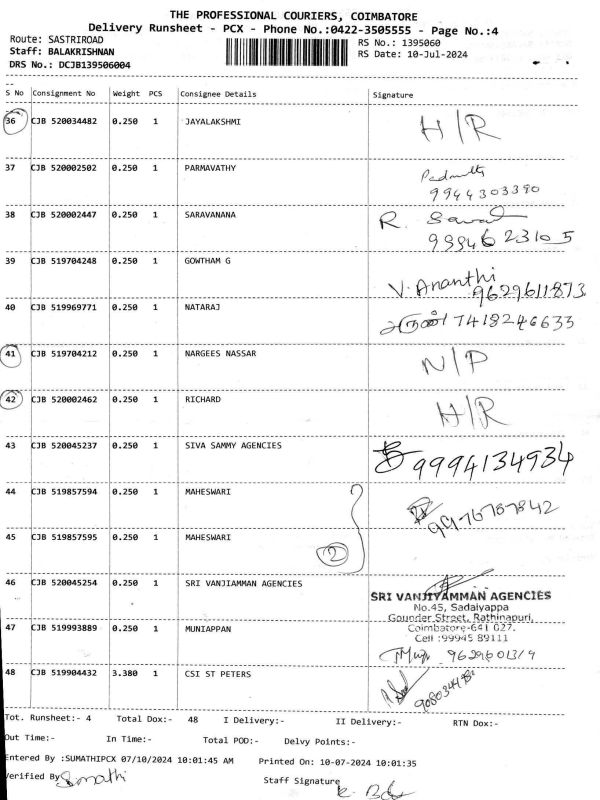 THE PROFESSIONAL COURIERS, COIMBATORE
Delivery Runsheet - PCX - Phone No.:0422-3505555 - Page No.:4
Route: SASTRIROAD
RS No.: 1395060
Staff: BALAKRISHNAN
RS Date: 10-Jul-2024
DRS No.: DCJB139506004
S No Consignment No Weight PCS Consignee Details Signature
36 CJB 520034482 0.250 1 JAYALAKSHMI H/R
37 CJB 520002502 0.250 1 PARMAVATHY
9944303390
38 CJB 520002447 0.250 1 SARAVANANA R.
99946 23105
39 CJB 519704248 0.250 1 GOWTHAM G V. Ananthi
9629611873
40 CJB 519969771 0.250 1 NATARAJ அருண் 7418246633
41 CJB 519704212 0.250 1 NARGEES NASSAR N/P
42 CJB 520002462 0.250 1 RICHARD H/R
43 CJB 520045237 0.250 1 SIVA SAMMY AGENCIES 9994134934
44 CJB 519857594 0.250 1 MAHESWARI
45 CJB 519857595 0.250 1 MAHESWARI
2
46 CJB 520045254 0.250 1 SRI VANJIAMMAN AGENCIES
SRI VANJIYAMMAN AGENCIES
No.45, Sadaiyappa
Gounder Street, Rathinapuri,
Coimbatore-641 027.
Cell :99945 89111
47 CJB 519993889 0.250 1 MUNIAPPAN
48 CJB 519904432 3.380 1 CSI ST PETERS
Tot. Runsheet:- 4 Total Dox:- 48 I Delivery:- II Delivery:- RTN Dox:-
Out Time:- In Time:- Total POD:- Delvy Points:-
Entered By :SUMATHIPCX 07/10/2024 10:01:45 AM Printed On: 10-07-2024 10:01:35
Verified By Sumathi
Staff Signature